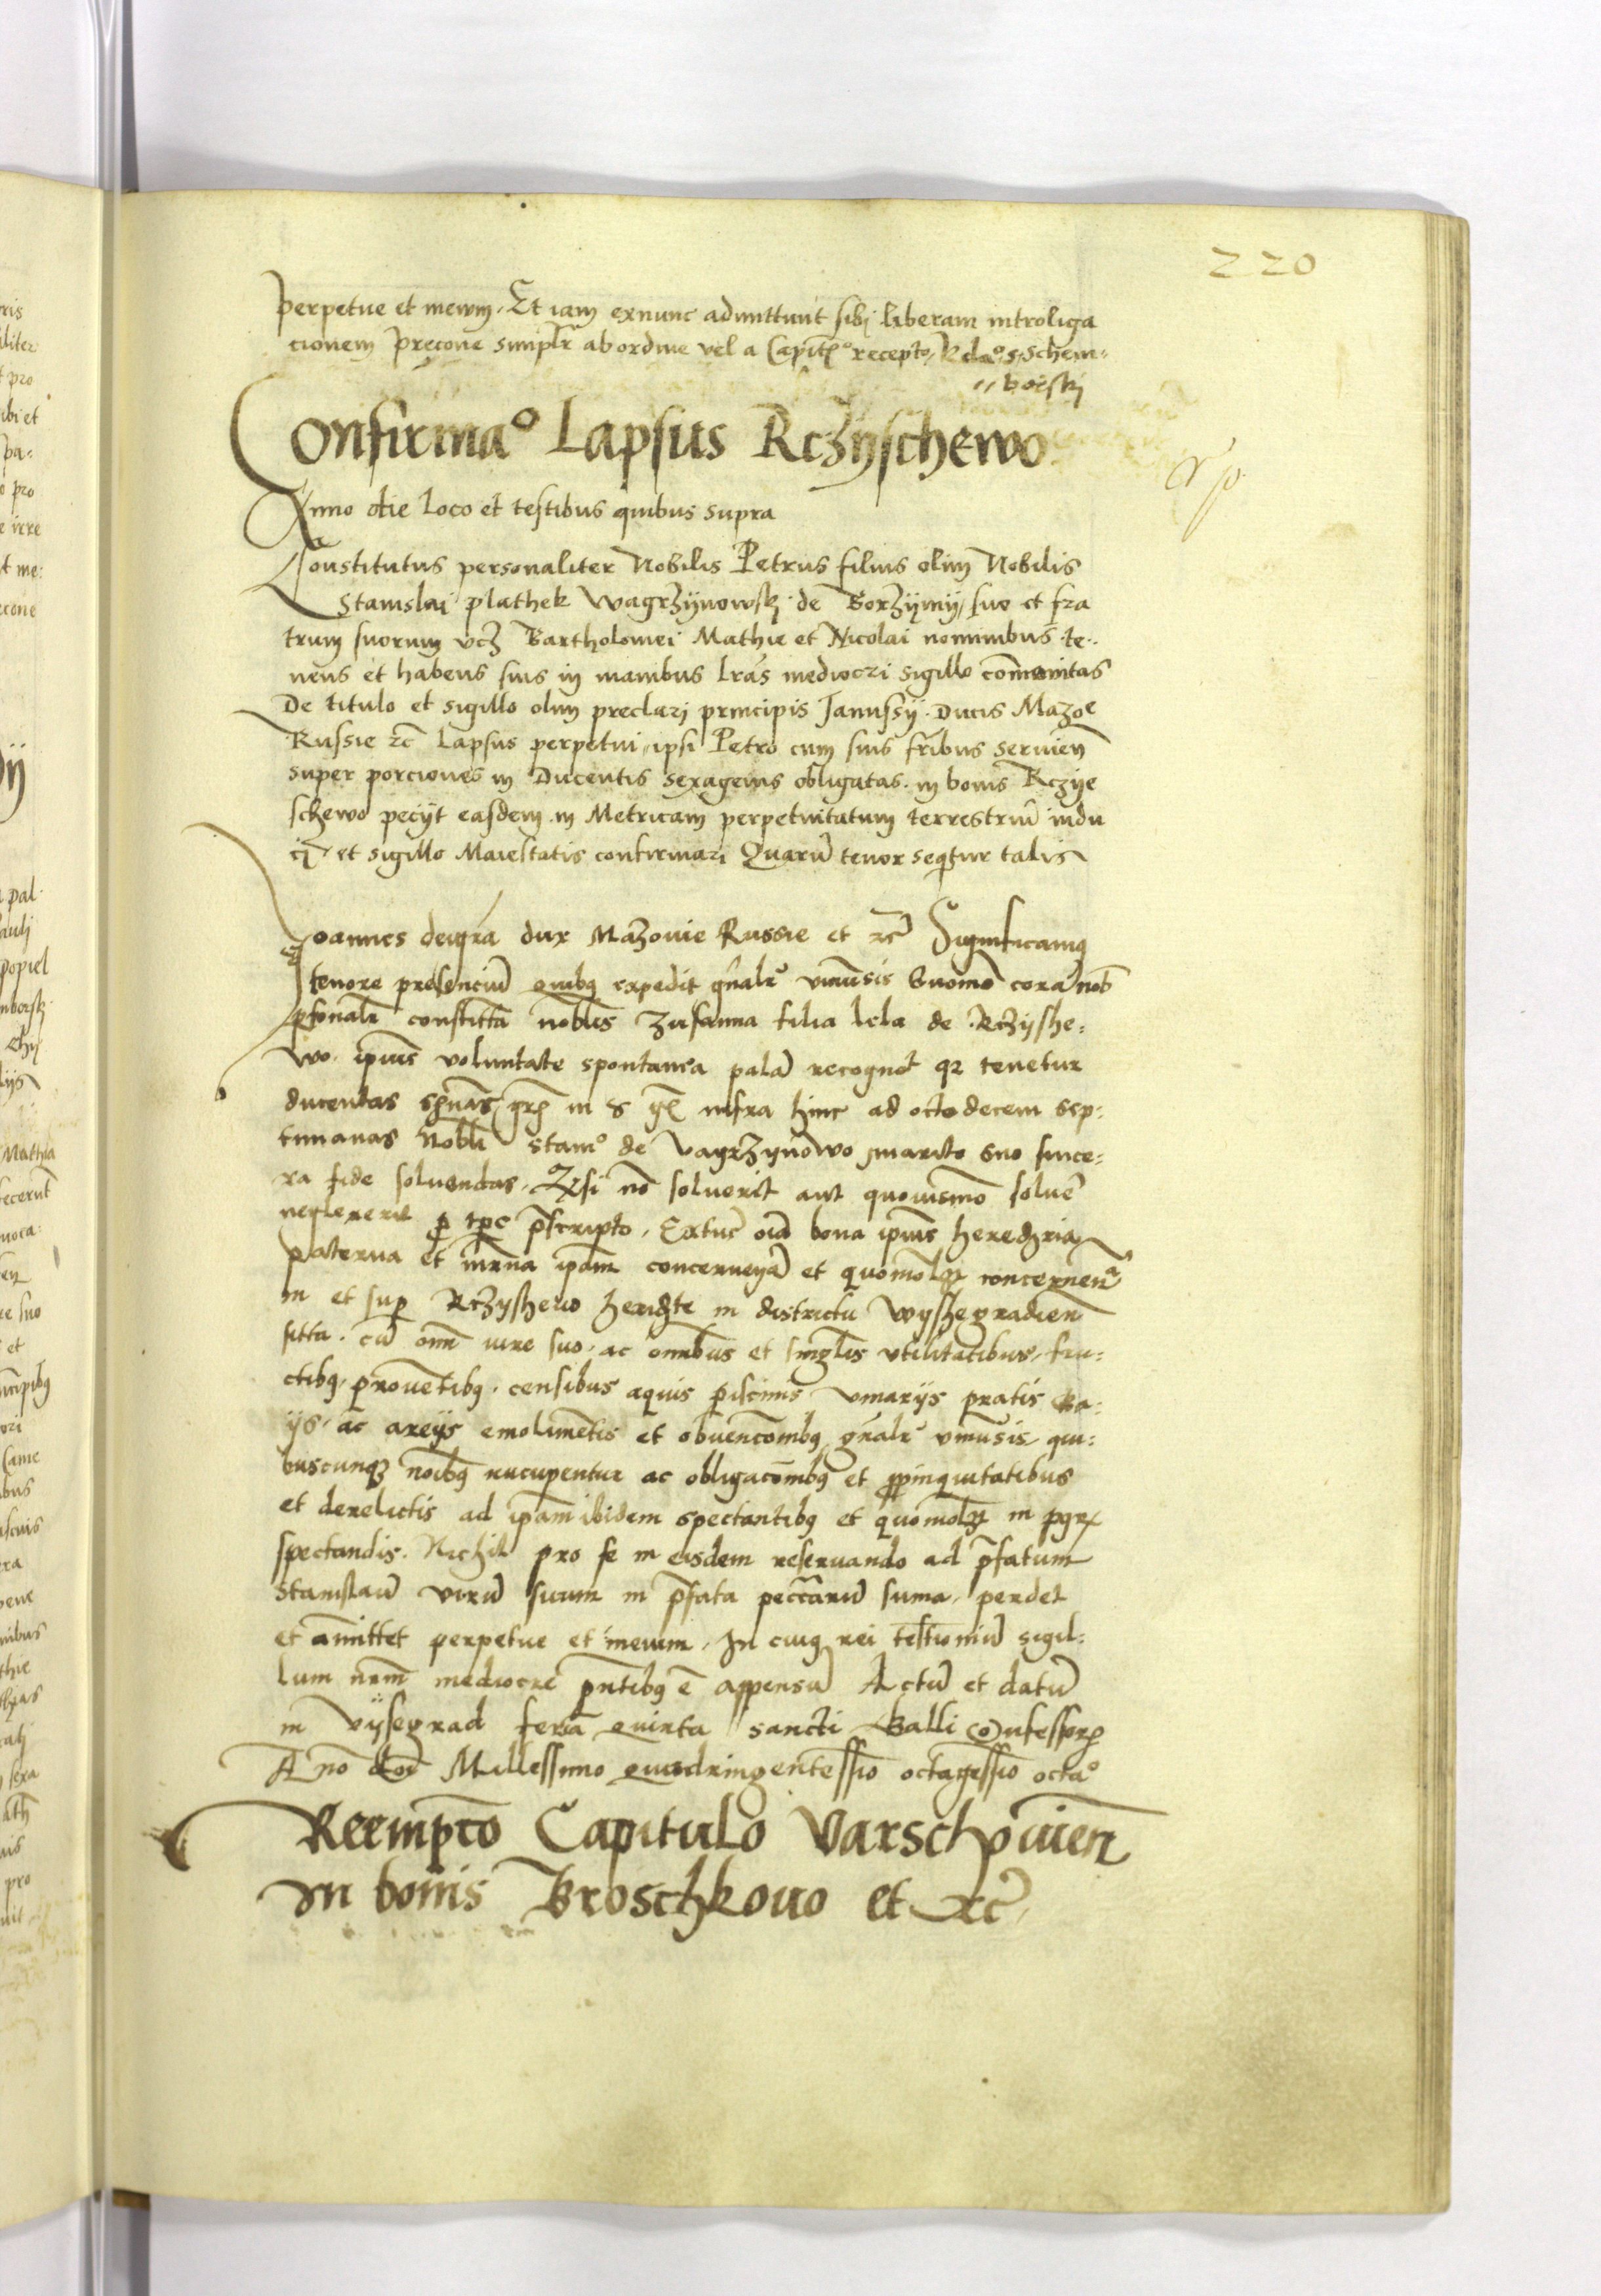 220
perpetue et mewm. Et iam exnunc admittunt sibi liberam introliga
cionem precone simplr ab ordine vel a Capitº recepto, Rdaº S. Schem=
"borskj
Confirmaº Lapsus Rczyschewo
Anno die Loco et testibus quibus supra
Constitutus personaliter Nobilis Petrus filius olim Nobilis
Stanislai plathek Wagrzynowskj de Gorzyny, suo et fra
trum suorum vcz Bartholomei Mathie et Nicolai nominibus te..
nens et habens suis in manibus lras mediocri sigillo comunitas
De titulo et sigillo olim preclarj principis Janussij Ducis Mazoe
Russie zc Lapsus perpetui, ipsi Petro cum suis fribus servien
super porciones in Ducentis sexagenis obligatas in bonis Rczye
schewo peciit easdem in Metricam perpetuitatum terrestriu indu
ci et sigillo Maiestatis confirmari Quaru tenor seqtur talis
Joannes dei gra dux Mazouie Russie et zc Significamq
tenore presenciu quibq expedit gnalr vniusis Quomo cora nob
psonalr constitta noblis Zusanna filia lcla de Rczyshe=
wo ipius voluntate spontanea pala recognot qz tenetur
ducentas sxnas gr in s infra hinc ad octo decem sep=
timanas Nobli Stanº de Vagrzynowo marito suo since=
ra fide soluendas. Qsi no soluerit aut quouismo solue
neglexerit p tpe pscripto. Extuc oia bona ipius heredria
paterna et mrna ipam concernenta et quomolz concernen
in et sup Rczyshewo heridte in districtu Wyshegradien
sitta. cu omi iure suo ac omibus et singlis vtilitatibus, fru=
ctibq, prouetibq, censibus aquis piscinis vinarijs pratis Ga=
ijs ac areijs emolimetis et obuencombq, gnalr vniusis, qui=
buscunqz noibq nucupentur ac obligacombq et ppinquitatibus
et derelictis ad ipam ibidem spectantibq et quomolz in
spectandis. Nichil pro se in eisdem reseruando ad pfatum
Stanislau viru suum in pfata peccaru suma, perdet
et amittet perpetue et meuum. In cuiq rei testioniu sigil=
lum nrm mediocre pntibq e appensu Actu et datu
in Vysegrad feria quinta sancti Galli Confessor
Ano doi Millessimo quadringentessio octagessio octaº
Reempco Capitulo Varschouien
In bonis Broschkouo et zc